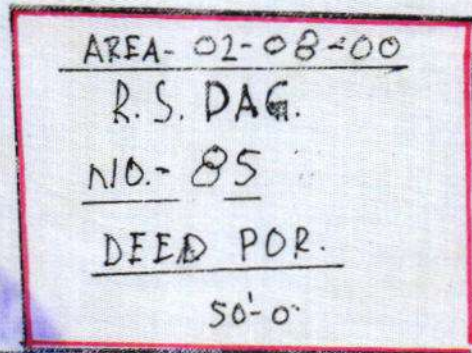 AREA- 02-08-00
R.S. DAG.
NO.- 85
DEED POR.
50'-0"